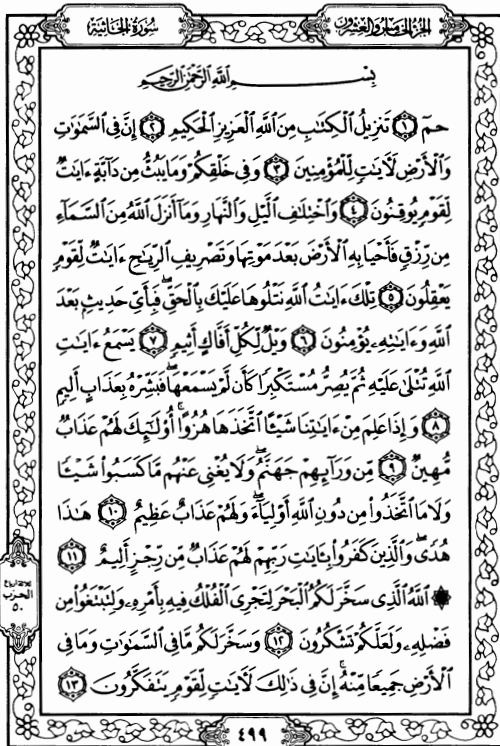 سُورَةُ الجَاثِيَةِ
الجُزْءُ الخَامِسُ وَالعِشْرُونَ
بِسْمِ اللَّهِ الرَّحْمَٰنِ الرَّحِيمِ
حمٓ ١ تَنزِيلُ الْكِتَابِ مِنَ اللَّهِ الْعَزِيزِ الْحَكِيمِ ٢ إِنَّ فِي السَّمَاوَاتِ
وَالْأَرْضِ لَآيَاتٍ لِّلْمُؤْمِنِينَ ٣ وَفِي خَلْقِكُمْ وَمَا يَبُثُّ مِن دَابَّةٍ ءَايَاتٌ
لِّقَوْمٍ يُوقِنُونَ ٤ وَاخْتِلَافِ اللَّيْلِ وَالنَّهَارِ وَمَا أَنزَلَ اللَّهُ مِنَ السَّمَاءِ
مِن رِّزْقٍ فَأَحْيَا بِهِ الْأَرْضَ بَعْدَ مَوْتِهَا وَتَصْرِيفِ الرِّيَاحِ ءَايَاتٌ لِّقَوْمٍ
يَعْقِلُونَ ٥ تِلْكَ ءَايَاتُ اللَّهِ نَتْلُوهَا عَلَيْكَ بِالْحَقِّ فَبِأَيِّ حَدِيثٍ بَعْدَ
اللَّهِ وَءَايَاتِهِ يُؤْمِنُونَ ٦ وَيْلٌ لِّكُلِّ أَفَّاكٍ أَثِيمٍ ٧ يَسْمَعُ ءَايَاتِ
اللَّهِ تُتْلَىٰ عَلَيْهِ ثُمَّ يُصِرُّ مُسْتَكْبِرًا كَأَن لَّمْ يَسْمَعْهَا فَبَشِّرْهُ بِعَذَابٍ أَلِيمٍ
٨ وَإِذَا عَلِمَ مِنْ ءَايَاتِنَا شَيْئًا اتَّخَذَهَا هُزُوًا أُوْلَٰئِكَ لَهُمْ عَذَابٌ
مُّهِينٌ ٩ مِّن وَرَائِهِمْ جَهَنَّمُ وَلَا يُغْنِي عَنْهُم مَّا كَسَبُوا شَيْئًا
وَلَا مَا اتَّخَذُوا مِن دُونِ اللَّهِ أَوْلِيَاءَ وَلَهُمْ عَذَابٌ عَظِيمٌ ١٠ هَٰذَا
هُدًى وَالَّذِينَ كَفَرُوا بِـَٔايَاتِ رَبِّهِمْ لَهُمْ عَذَابٌ مِّن رِّجْزٍ أَلِيمٌ ١١
۞ اللَّهُ الَّذِي سَخَّرَ لَكُمُ الْبَحْرَ لِتَجْرِيَ الْفُلْكُ فِيهِ بِأَمْرِهِ وَلِتَبْتَغُوا مِن
فَضْلِهِ وَلَعَلَّكُمْ تَشْكُرُونَ ١٢ وَسَخَّرَ لَكُم مَّا فِي السَّمَاوَاتِ وَمَا فِي
الْأَرْضِ جَمِيعًا مِّنْهُ إِنَّ فِي ذَٰلِكَ لَآيَاتٍ لِّقَوْمٍ يَتَفَكَّرُونَ ١٣
ثلاثة أرباع
الحزب
٥٠
٤٩٩